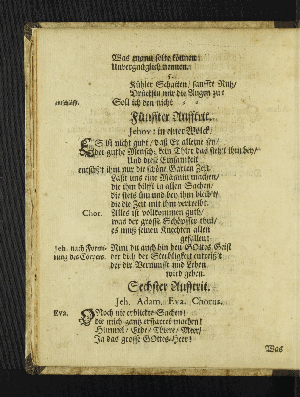 Was
können
Unvergnüglich nennen.
5.
Kühler Schatten / sanffte Ruh /
Drückstu mir die Augen zu?
entschläfft. Soll ich den nicht
Fünffter Aufftrit.
Jehov: in einer Wolck.
ES ist nicht guht / daß Er allein sey /
der guhte Mensch / dem Thier das steht ihm bey /
Und diese Einsamkeit
ihm nur die schöne Garten Zeit
Last uns eine Männin machen /
die ihm hilfft in allen Sachen /
die stets üm und bey ihm bleibt /
die die Zeit mit ihm vertreibt.
Chor. Alles ist vollkommen guth /
was der grosse Schöpffer thut /
es muß seinen Knechten allen
gefallen.
Jeh. nach Formi- Nim du auch hin den GOttes Geist
rung des Cörpers. der dich der Sterbligkeit entreißt /
der dir Vernunfft und Leben
wird geben.
Sechster Aufftrit.
Jeh. Adam. Eva. Chorus.
Eva. O Noch nie erblickte Sachen!
die mich gantz erstarret machen!
Himmel / Erde / Thiere / Meer /
Ja das grosse GOttes-Heer!
Was